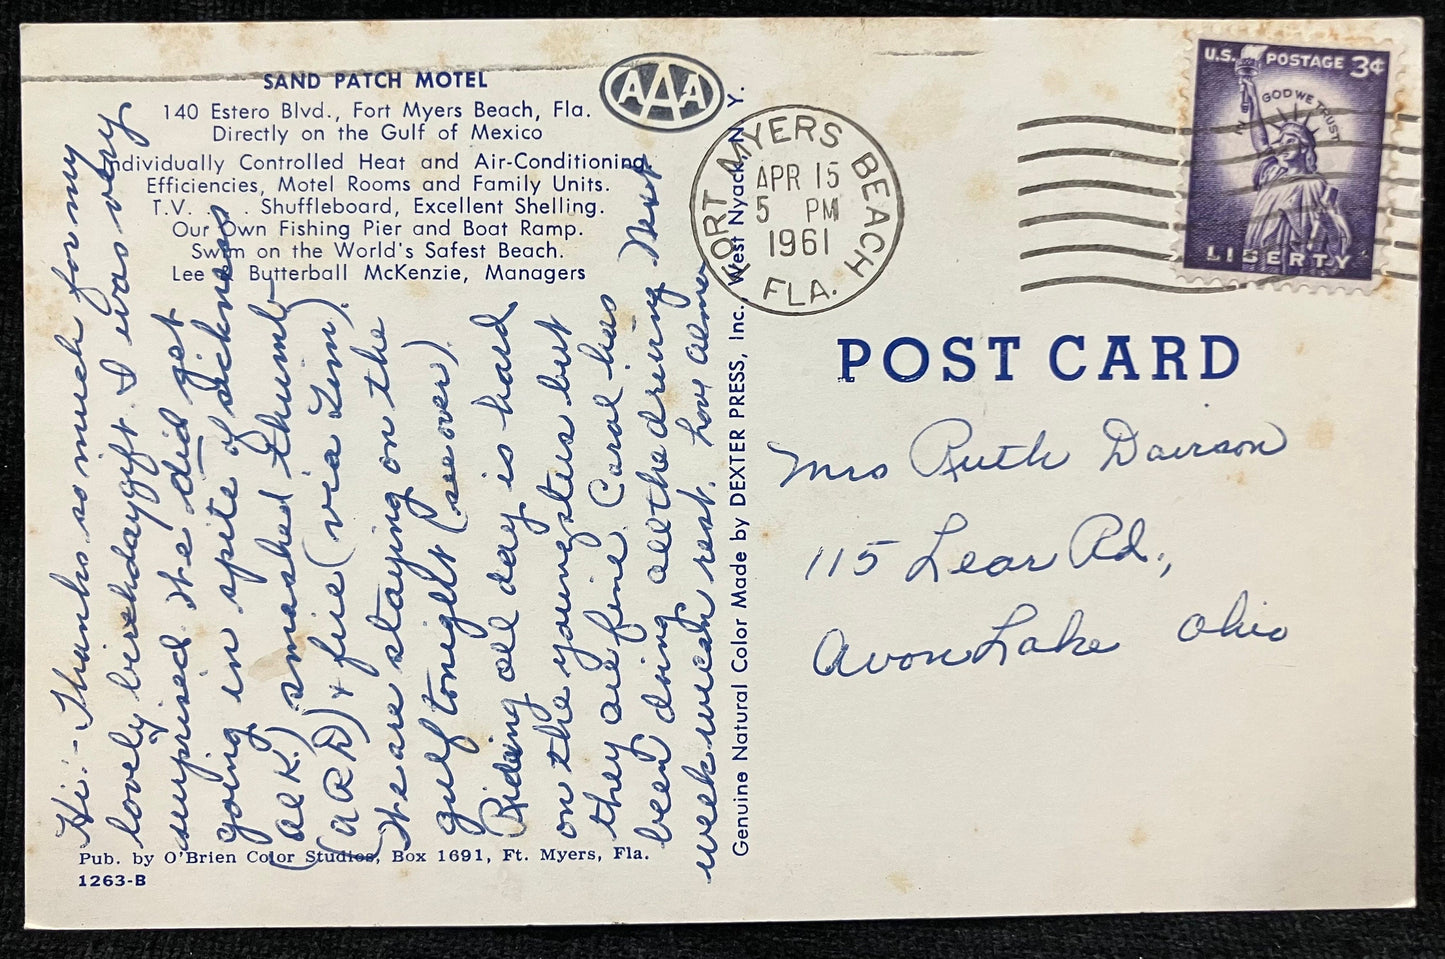 SAND PATCH MOTEL
140 Estero Blvd., Fort Myers Beach, Fla.
Directly on the Gulf of Mexico
Individually Controlled Heat and Air-Conditioning.
Efficiencies, Motel Rooms and Family Units.
T.V. . . . Shuffleboard, Excellent Shelling.
Our Own Fishing Pier and Boat Ramp.
Swim on the World's Safest Beach.
Lee & Butterball McKenzie, Managers
AAA
Hi:- Thanks so much for my
lovely birthday gift. I was very
surprised. We did get
going in spite of sickness
(al K.) smashed thumb
(a R D) + fire (via Jim).
We are staying on the
gulf tonight (see over).
Riding all day is hard
on the youngsters but
they are fine. Carol has
been doing all the driving. Next
week we can rest. Love Alma
Pub. by O'Brien Color Studios, Box 1691, Ft. Myers, Fla.
1263-B
Genuine Natural Color Made by DEXTER PRESS, Inc., West Nyack, N. Y.
FORT MYERS BEACH
APR 15
5 PM
1961
FLA.
U.S. POSTAGE 3¢
IN GOD WE TRUST
LIBERTY
POST CARD
Mrs Ruth Davison
115 Lear Rd.,
Avon Lake Ohio